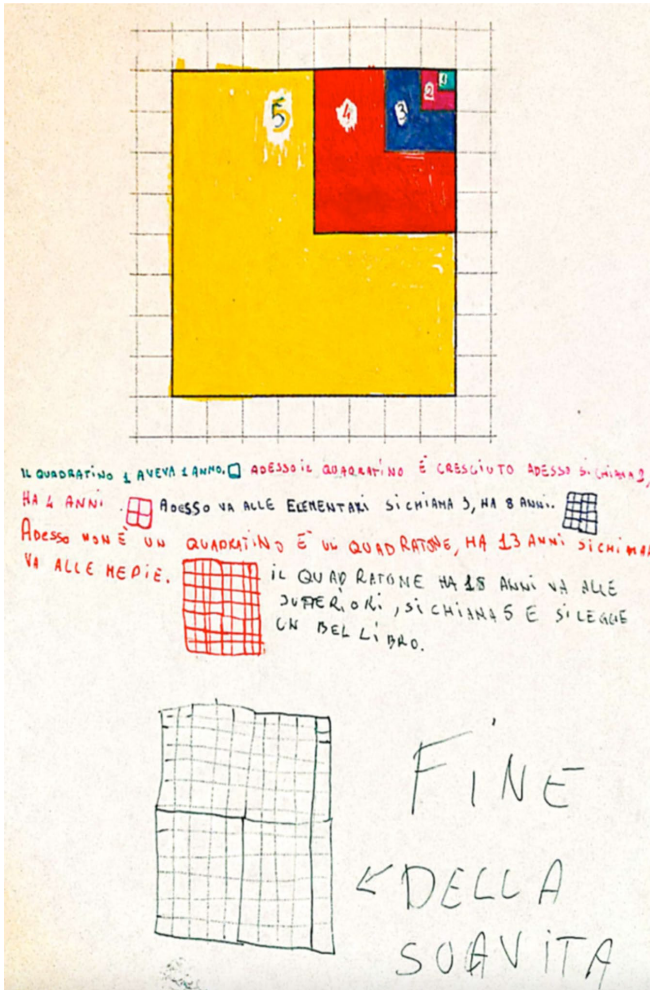 5 4 3 2 1
IL QUADRATINO 1 AVEVA 1 ANNO. ADESSO IL QUADRATINO È CRESCIUTO ADESSO SI CHIAMA 2,
HA 4 ANNI. ADESSO VA ALLE ELEMENTARI SI CHIAMA 3, HA 8 ANNI.
ADESSO NON È UN QUADRATINO È UN QUADRATONE, HA 13 ANNI SI CHIAMA
VA ALLE MEDIE. IL QUADRATONE HA 18 ANNI VA ALLE
SUPERIORI, SI CHIAMA 5 E SI LEGGE
UN BEL LIBRO.
FINE
DELLA
SUAVITA